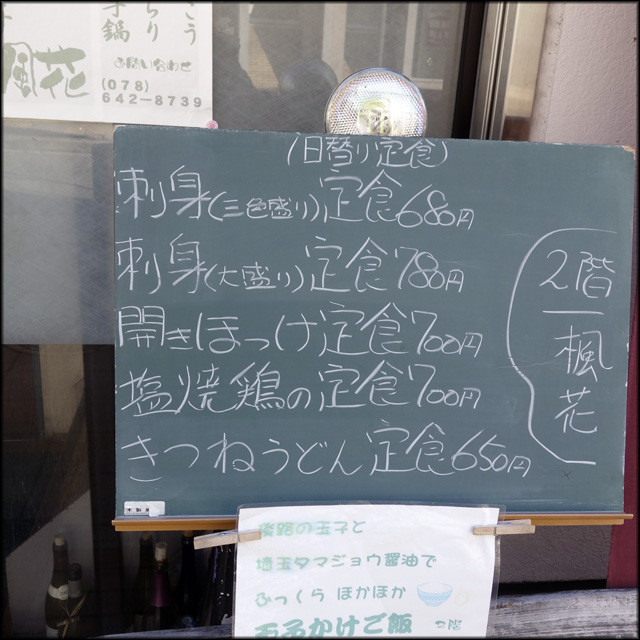 風花
お問い合わせ
(078)
642-8739
(日替り定食)
刺身(三色盛り)定食680円
刺身(大盛り)定食780円
開きほっけ定食700円
塩焼鶏の定食700円
きつねうどん定食650円
2階
楓花
淡路の玉子と
埼玉タマジョウ醤油で
ふっくら ほかほか
たまごかけご飯 2階